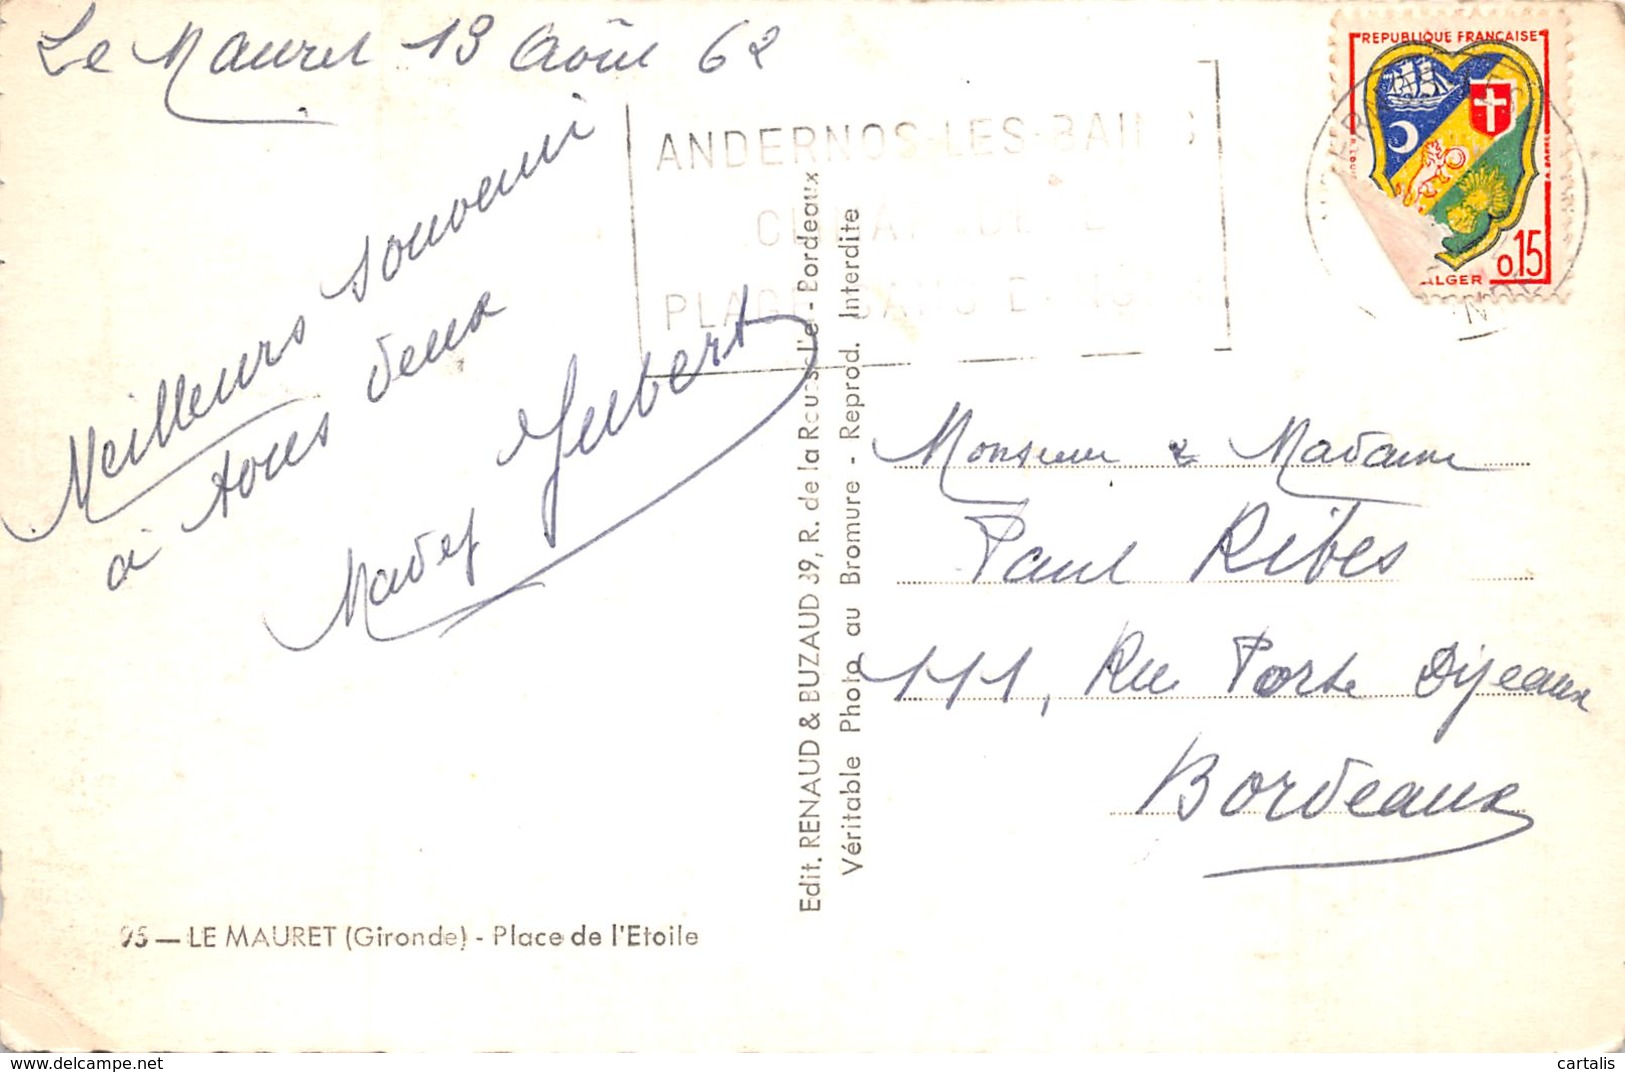 Le Mauret 13 Août 62
Meilleurs souvenir
à tous deux
Hubert
REPUBLIQUE FRANCAISE
ALGER
0,15
ANDERNOS-LES-BAINS
PLAGE SANS DANGER
Edit. RENAUD & BUZAUD 39, R. de la Rousselle - Bordeaux
Véritable Photo au Bromure - Reprod. Interdite
Monsieur & Madame
Paul Ribes
111, Rue Porte Dijeaux
Bordeaux
95 — LE MAURET (Gironde) - Place de l'Etoile
https://www.delcampe.net
cartalis